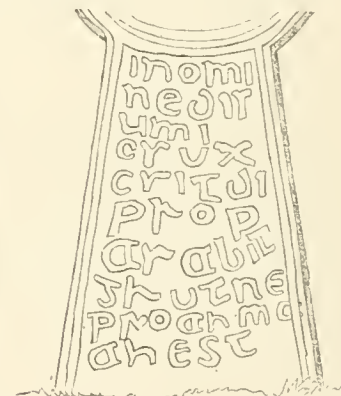 inomi
nedis
umi
crux
critdi
prop
arabit
grutne
proanma
ahest